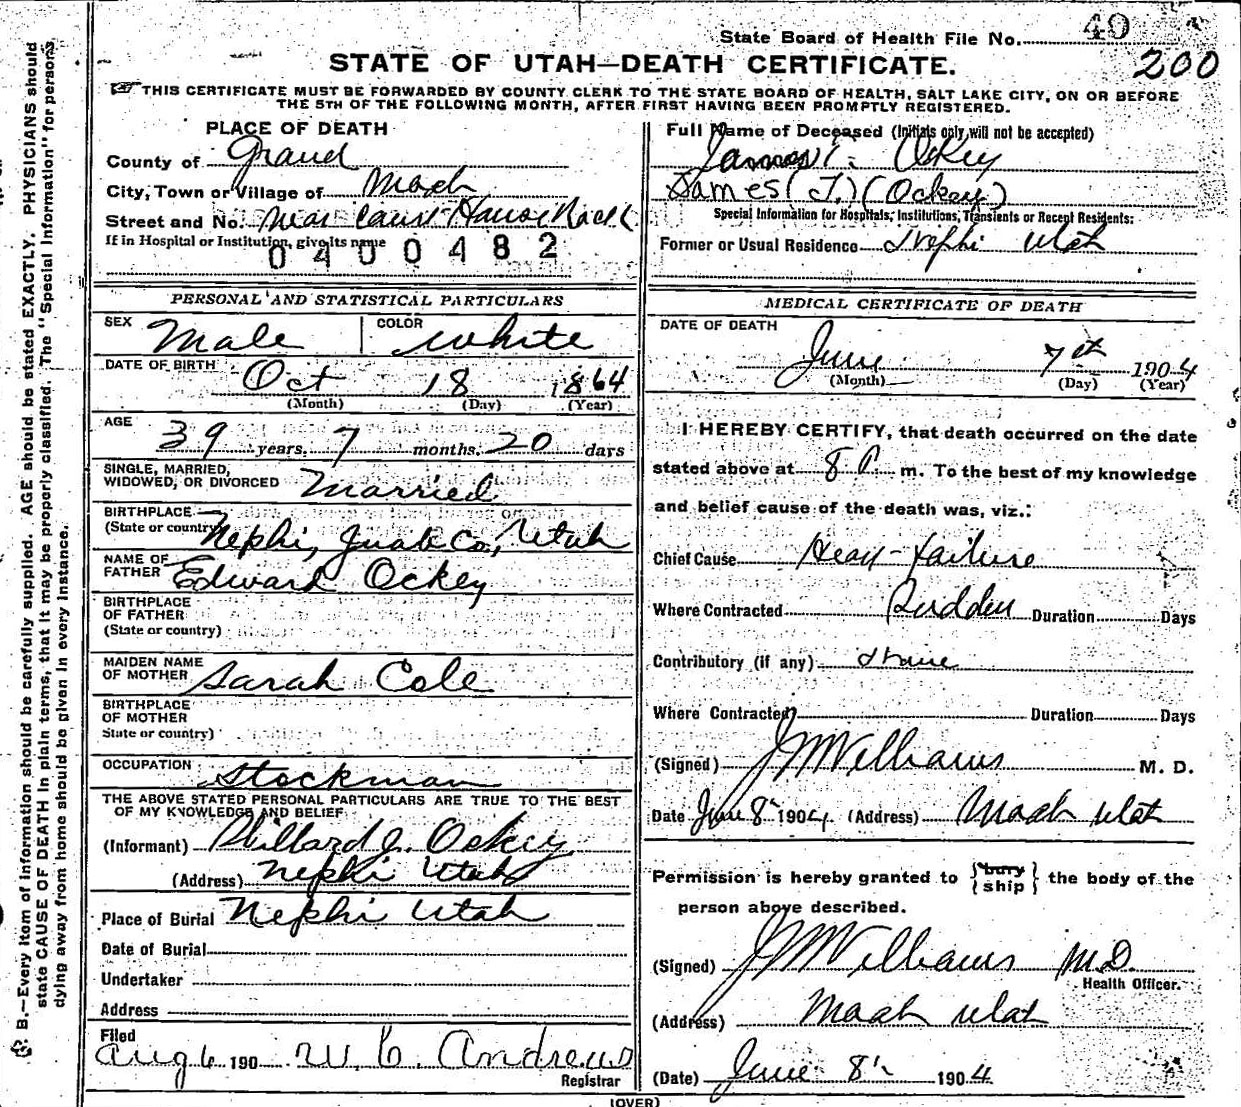 State Board of Health File No. 49
200
STATE OF UTAH—DEATH CERTIFICATE.
THIS CERTIFICATE MUST BE FORWARDED BY COUNTY CLERK TO THE STATE BOARD OF HEALTH, SALT LAKE CITY, ON OR BEFORE
THE 5TH OF THE FOLLOWING MONTH, AFTER FIRST HAVING BEEN PROMPTLY REGISTERED.
PLACE OF DEATH
County of Grand
City, Town or Village of Moab
Street and No. Near Court House Rock
If in Hospital or Institution, give its name
0400482
PERSONAL AND STATISTICAL PARTICULARS
SEX Male COLOR White
DATE OF BIRTH Oct 18 1864
(Month) (Day) (Year)
AGE
39 years, 7 months, 20 days
SINGLE, MARRIED,
WIDOWED, OR DIVORCED Married
BIRTHPLACE
(State or country) Nephi, Juab Co, Utah
NAME OF
FATHER Edward Ockey
BIRTHPLACE
OF FATHER
(State or country)
MAIDEN NAME
OF MOTHER Sarah Cole
BIRTHPLACE
OF MOTHER
State or country)
OCCUPATION Stockman
THE ABOVE STATED PERSONAL PARTICULARS ARE TRUE TO THE BEST
OF MY KNOWLEDGE AND BELIEF
(Informant) Willard J. Ockey
(Address) Nephi Utah
Place of Burial Nephi Utah
Date of Burial
Undertaker
Address
Filed
Aug 6 190 W. C. Andrews
Registrar
Full Name of Deceased (Initials only will not be accepted)
James T. Ockey
James (T.) (Ockey)
Special Information for Hospitals, Institutions, Transients or Recent Residents:
Former or Usual Residence Nephi Utah
MEDICAL CERTIFICATE OF DEATH
DATE OF DEATH
June 7th 1904
(Month) (Day) (Year)
I HEREBY CERTIFY, that death occurred on the date
stated above at 8 P. m. To the best of my knowledge
and belief cause of the death was, viz.:
Chief Cause Heart-failure
Where Contracted Sudden Duration Days
Contributory (if any) None
Where Contracted Duration Days
(Signed) J W Williams M. D.
Date June 8" 1904 (Address) Moab Utah
Permission is hereby granted to {bury
ship} the body of the
person above described.
(Signed) J W Williams M.D.
Health Officer.
(Address) Moab Utah
(Date) June 8" 1904
(OVER)
B.—Every item of information should be carefully supplied. AGE should be stated EXACTLY. PHYSICIANS should
state CAUSE OF DEATH in plain terms, that it may be properly classified. The "Special Information" for persons
dying away from home should be given in every instance.